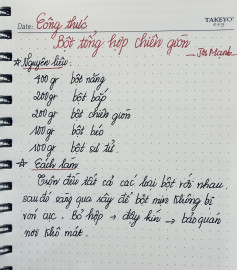 TAKEYO®
Date: Công thức
Bột tổng hợp chiên giòn
Nguyên liệu:
400 gr bột năng
200 gr bột bắp
200 gr bột chiên giòn
100 gr bột béo
100 gr bột sư tử
Cách làm
Trộn đều tất cả các loại bột với nhau.
sau đó sàng qua rây để bột mịn không bị
vón cục. Bỏ hộp → đậy kín → bảo quản
nơi khô mát.